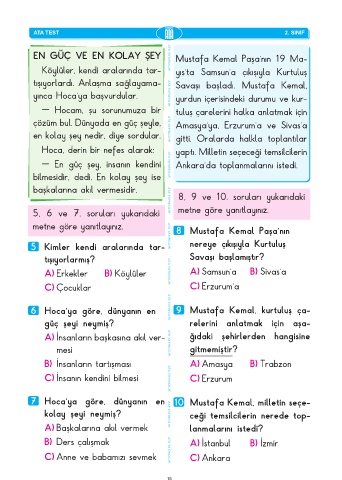 ATA TEST
2. SINIF
EN GÜÇ VE EN KOLAY ŞEY
Köylüler, kendi aralarında tar-
tışıyorlardı. Anlaşma sağlayama-
yınca Hoca'ya başvurdular.
— Hocam, şu sorunumuza bir
çözüm bul. Dünyada en güç şeyle,
en kolay şey nedir, diye sordular.
Hoca, derin bir nefes alarak:
— En güç şey, insanın kendini
bilmesidir, dedi. En kolay şey ise
başkalarına akıl vermesidir.
5, 6 ve 7. soruları yukarıdaki
metne göre yanıtlayınız.
5 Kimler kendi aralarında tar-
tışıyorlarmış?
A) Erkekler B) Köylüler
C) Çocuklar
6 Hoca'ya göre, dünyanın en
güç şeyi neymiş?
A) İnsanların başkasına akıl ver-
mesi
B) İnsanların tartışması
C) İnsanın kendini bilmesi
7 Hoca'ya göre, dünyanın en
kolay şeyi neymiş?
A) Başkalarına akıl vermek
B) Ders çalışmak
C) Anne ve babamızı sevmek
Mustafa Kemal Paşa'nın 19 Ma-
yıs'ta Samsun'a çıkışıyla Kurtuluş
Savaşı başladı. Mustafa Kemal,
yurdun içerisindeki durumu ve kur-
tuluş çarelerini halka anlatmak için
Amasya'ya, Erzurum'a ve Sivas'a
gitti. Oralarda halkla toplantılar
yaptı. Milletin seçeceği temsilcilerin
Ankara'da toplanmalarını istedi.
8, 9 ve 10. soruları yukarıdaki
metne göre yanıtlayınız.
8 Mustafa Kemal Paşa'nın
nereye çıkışıyla Kurtuluş
Savaşı başlamıştır?
A) Samsun'a B) Sivas'a
C) Erzurum'a
9 Mustafa Kemal, kurtuluş ça-
relerini anlatmak için aşa-
ğıdaki şehirlerden hangisine
gitmemiştir?
A) Amasya B) Trabzon
C) Erzurum
10 Mustafa Kemal, milletin seçe-
ceği temsilcilerin nerede top-
lanmalarını istedi?
A) İstanbul B) İzmir
C) Ankara